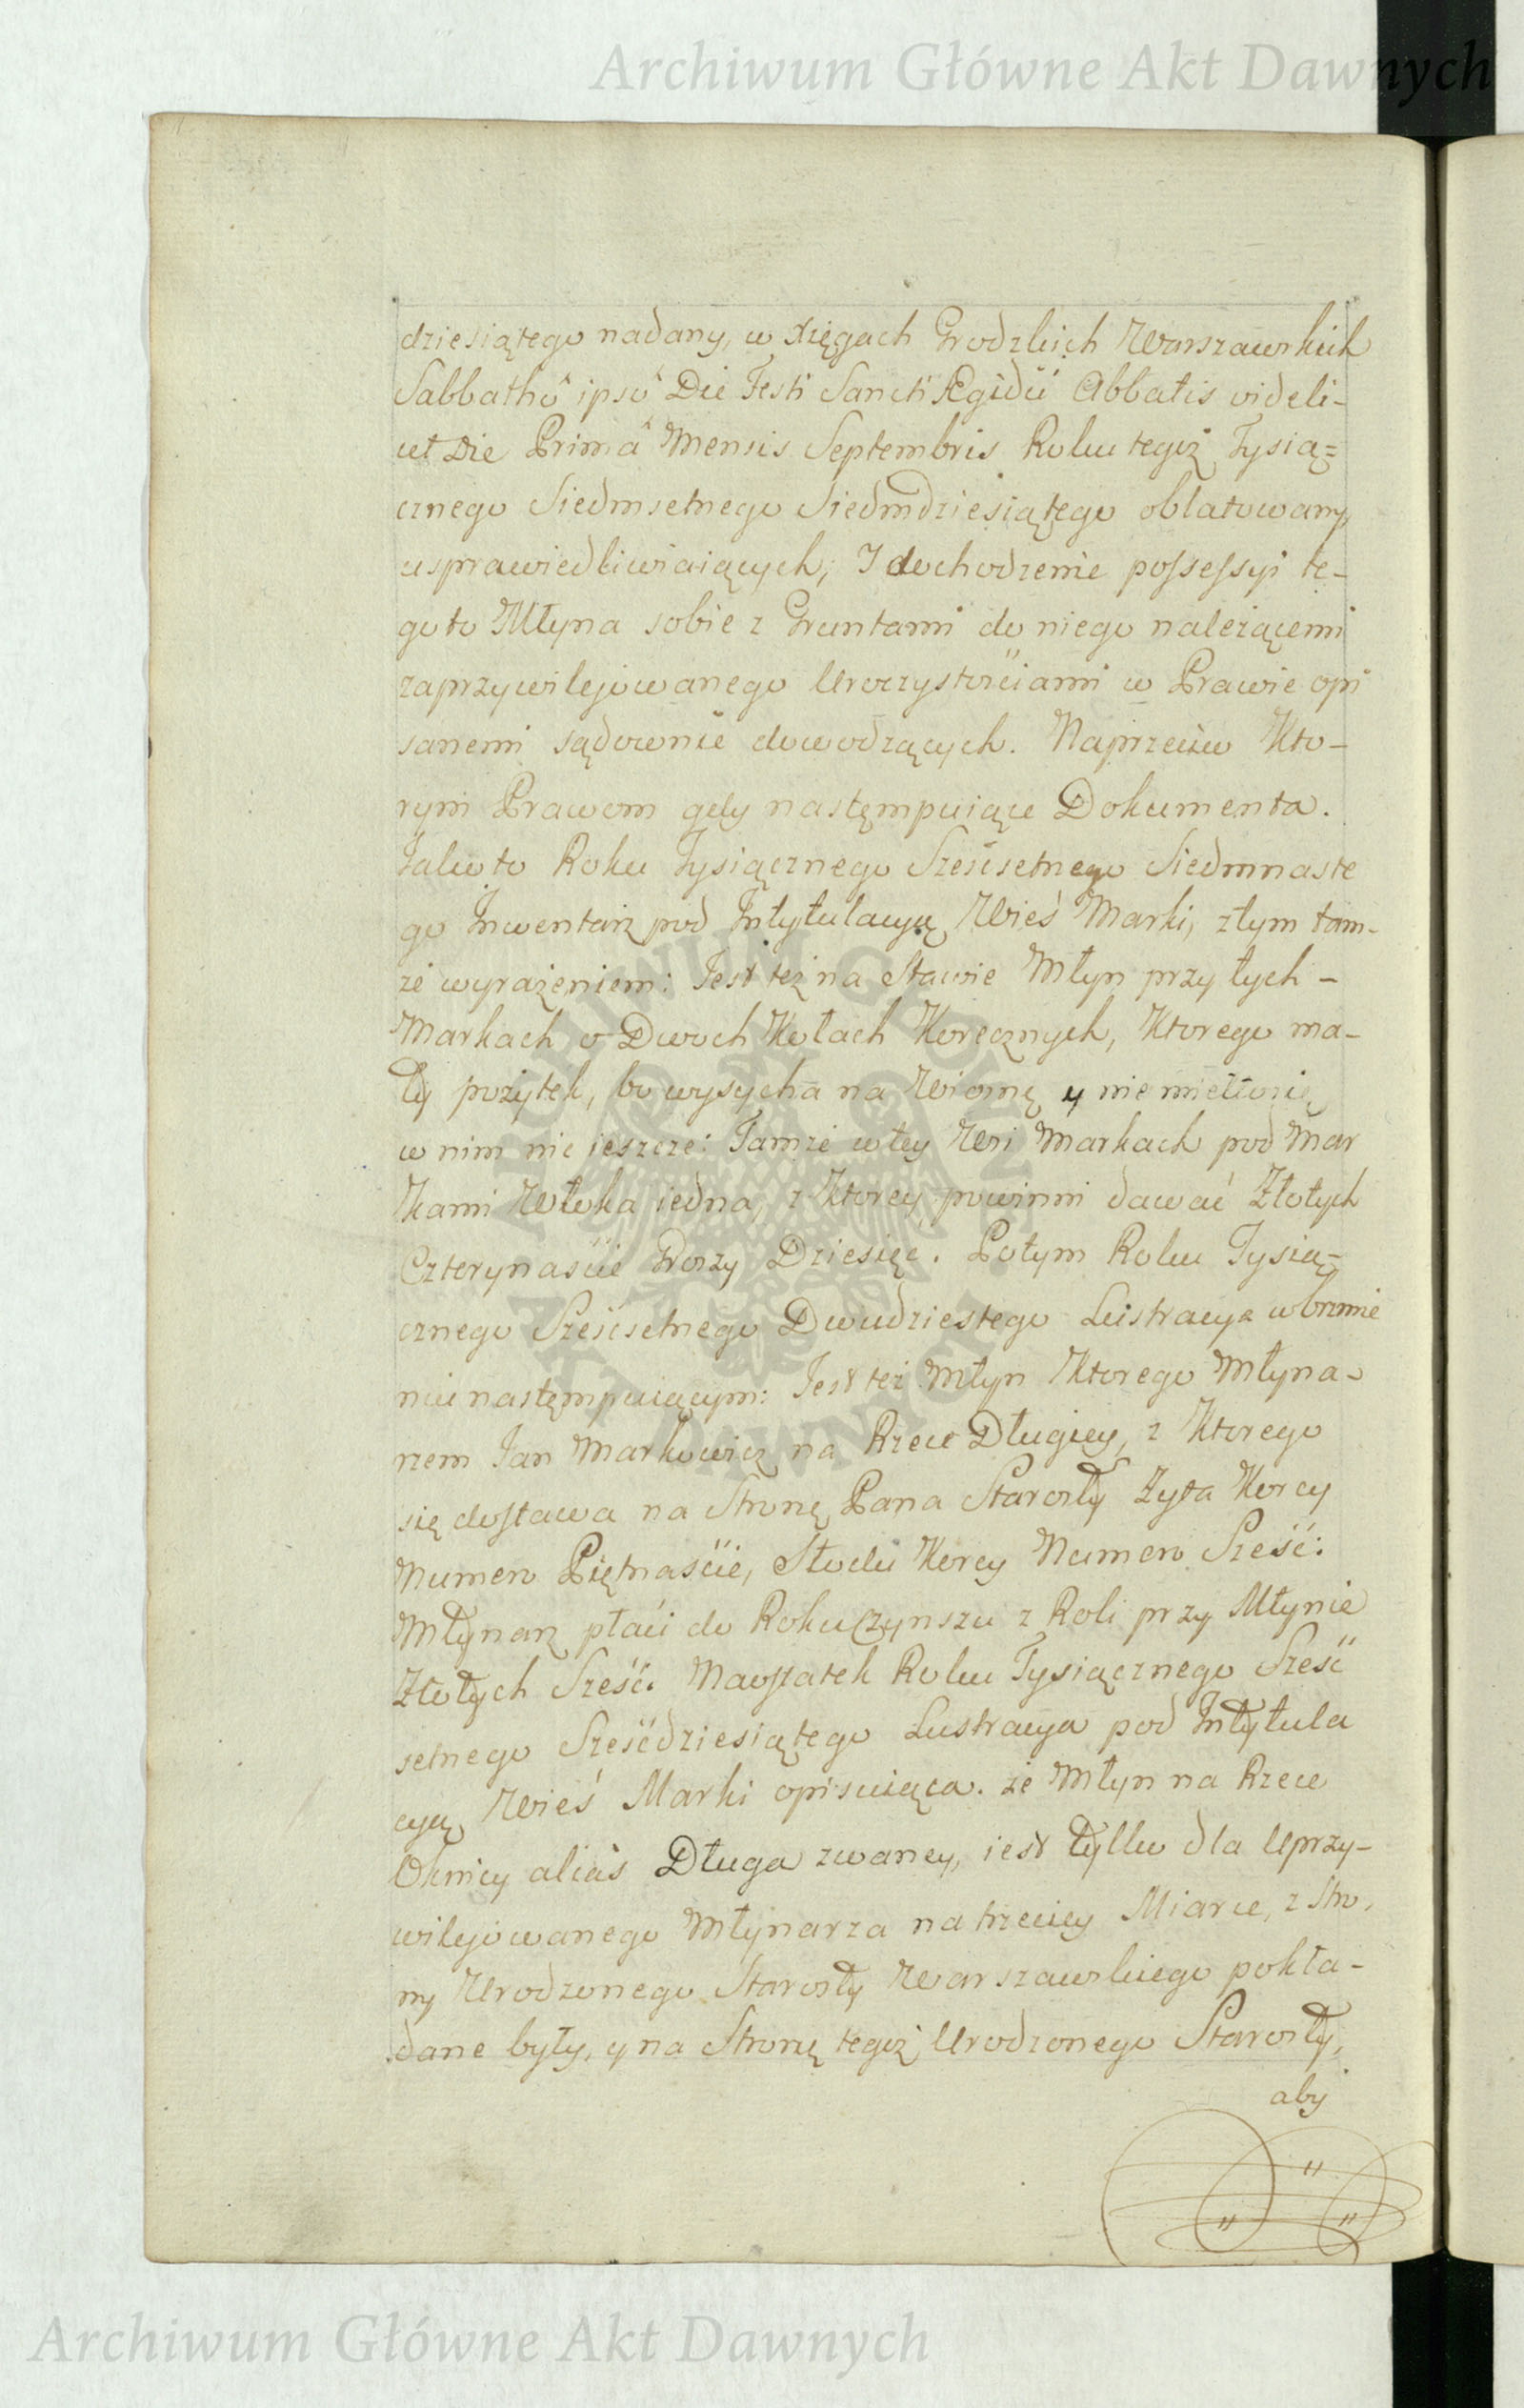 Archiwum Główne Akt Dawnych
dziesiątego nadany, w Xięgach Grodzkich Warszawskich
Sabbathô ipsô Die Festi Sancti Ægidii Abbatis videli-
cet Die Primâ Mensis Septembris Roku tegoż Tysią=
cznego Siedmsetnego Siedmdziesiątego oblatowany,
usprawiedliwiaiących, I dochodzenie possessyi te-
goto Młyna sobie z Gruntami do niego należącemi
zaprzywilejowanego Uroczystościami w Prawie opi
sanemi sądownie dowodzących. Naprzeciw Kto-
rym Prawom gdy następuiące Dokumenta.
Jako to Roku Tysiącznego Sześćsetnego Siedmnaste
go Inwentarz pod Intytulacyą Wieś Marki, z tym tam-
że wyrażeniem: Jest też na Stawie Młyn przy tych -
Markach o Dwoch Kołach Korecznych, Ktorego ma-
ły pożytek, bo wysycha na Wiosnę y nie mełło się
w nim nic ieszcze: Tamże w tey Wsi Markach pod Mar
Kami Włoka iedna, z Ktorey powinni dawać Złotych
Czterynaście Groszy Dziesięć. Potym Roku Tysią-
cznego Sześćsetnego Dwudziestego Lustracya w brzmie
niu następuiącym: Jest też Młyn Ktorego Młyna-
rzem Jan Markowicz na Rzece Długiey, z Ktorego
się dostawa na Stronę Pana Starosty Zyta Korcy
Numero Piętnaście, Słodu Korcy Numero Sześć:
Młynarz płaci do Roku Czynszu z Roli przy Młynie
Złotych Sześć. Naostatek Roku Tysiącznego Sześć
setnego Sześćdziesiątego Lustracya pod Intytula
cyą Wieś Marki opisuiąca. że Młyn na Rzece
Oknicy alias Długa zwaney, iest tylko dla Uprzy-
wilejowanego Młynarza na trzeciey Miarce, z Stro,
ny Urodzonego Starosty Warszawskiego pokła-
dane były, y na Stronę tegoż Urodzonego Starosty,
aby
Archiwum Główne Akt Dawnych